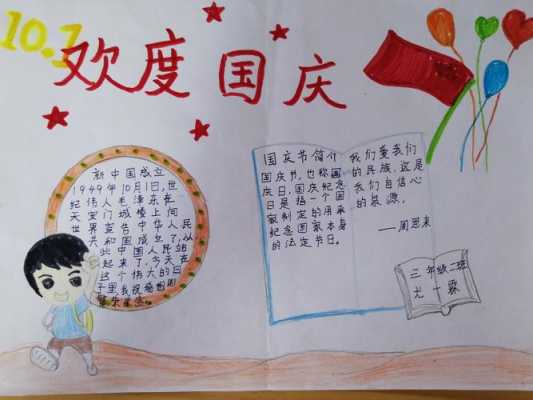 10.1
欢度国庆
新中国成立
1949年10月1日,世
纪伟人毛泽东在
天安门城楼上向
世界宣告中华人民
共和国成立了,从
此中国人民站
起来了,今天在
这个伟大的日
子里,我祝愿祖国
国庆节简介
国庆节,也称国
庆日,国庆纪念
日是指一个国
家制定的用来
纪念国家本身
的法定节日。
我们爱我们
的民族,这是
我们自信心
的泉源。
——周恩来
三年级二班
尤一霖